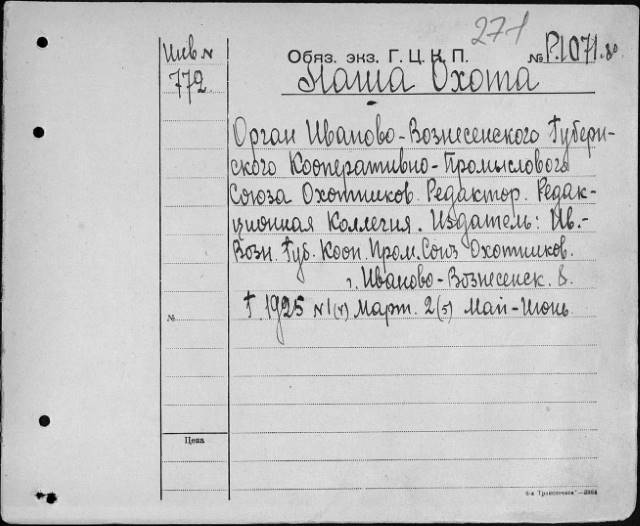 271
Инв N
772
Обяз. экз. Г. Ц. К. П. № Р.1071.
Наша Охота
Орган Иваново-Вознесенского Губерн-
ского Кооперативно-Промыслового
Союза Охотников. Редактор. Редак-
ционная Коллегия. Издатель: Ив.-
Возн. Губ. Кооп. Пром. Союз Охотников.
г. Иваново-Вознесенск. 8.
Г. 1925 N 1(4) Март. 2(5) Май-Июнь
№
Цена